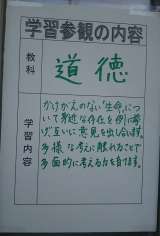 学習参観の内容
教科
道徳
学習内容
かけがえのない「生命」に
ついて身近な存在を例に挙
げ、互いに意見を出し合います。
多様な考えに触れることで
多面的に考える力を育てます。